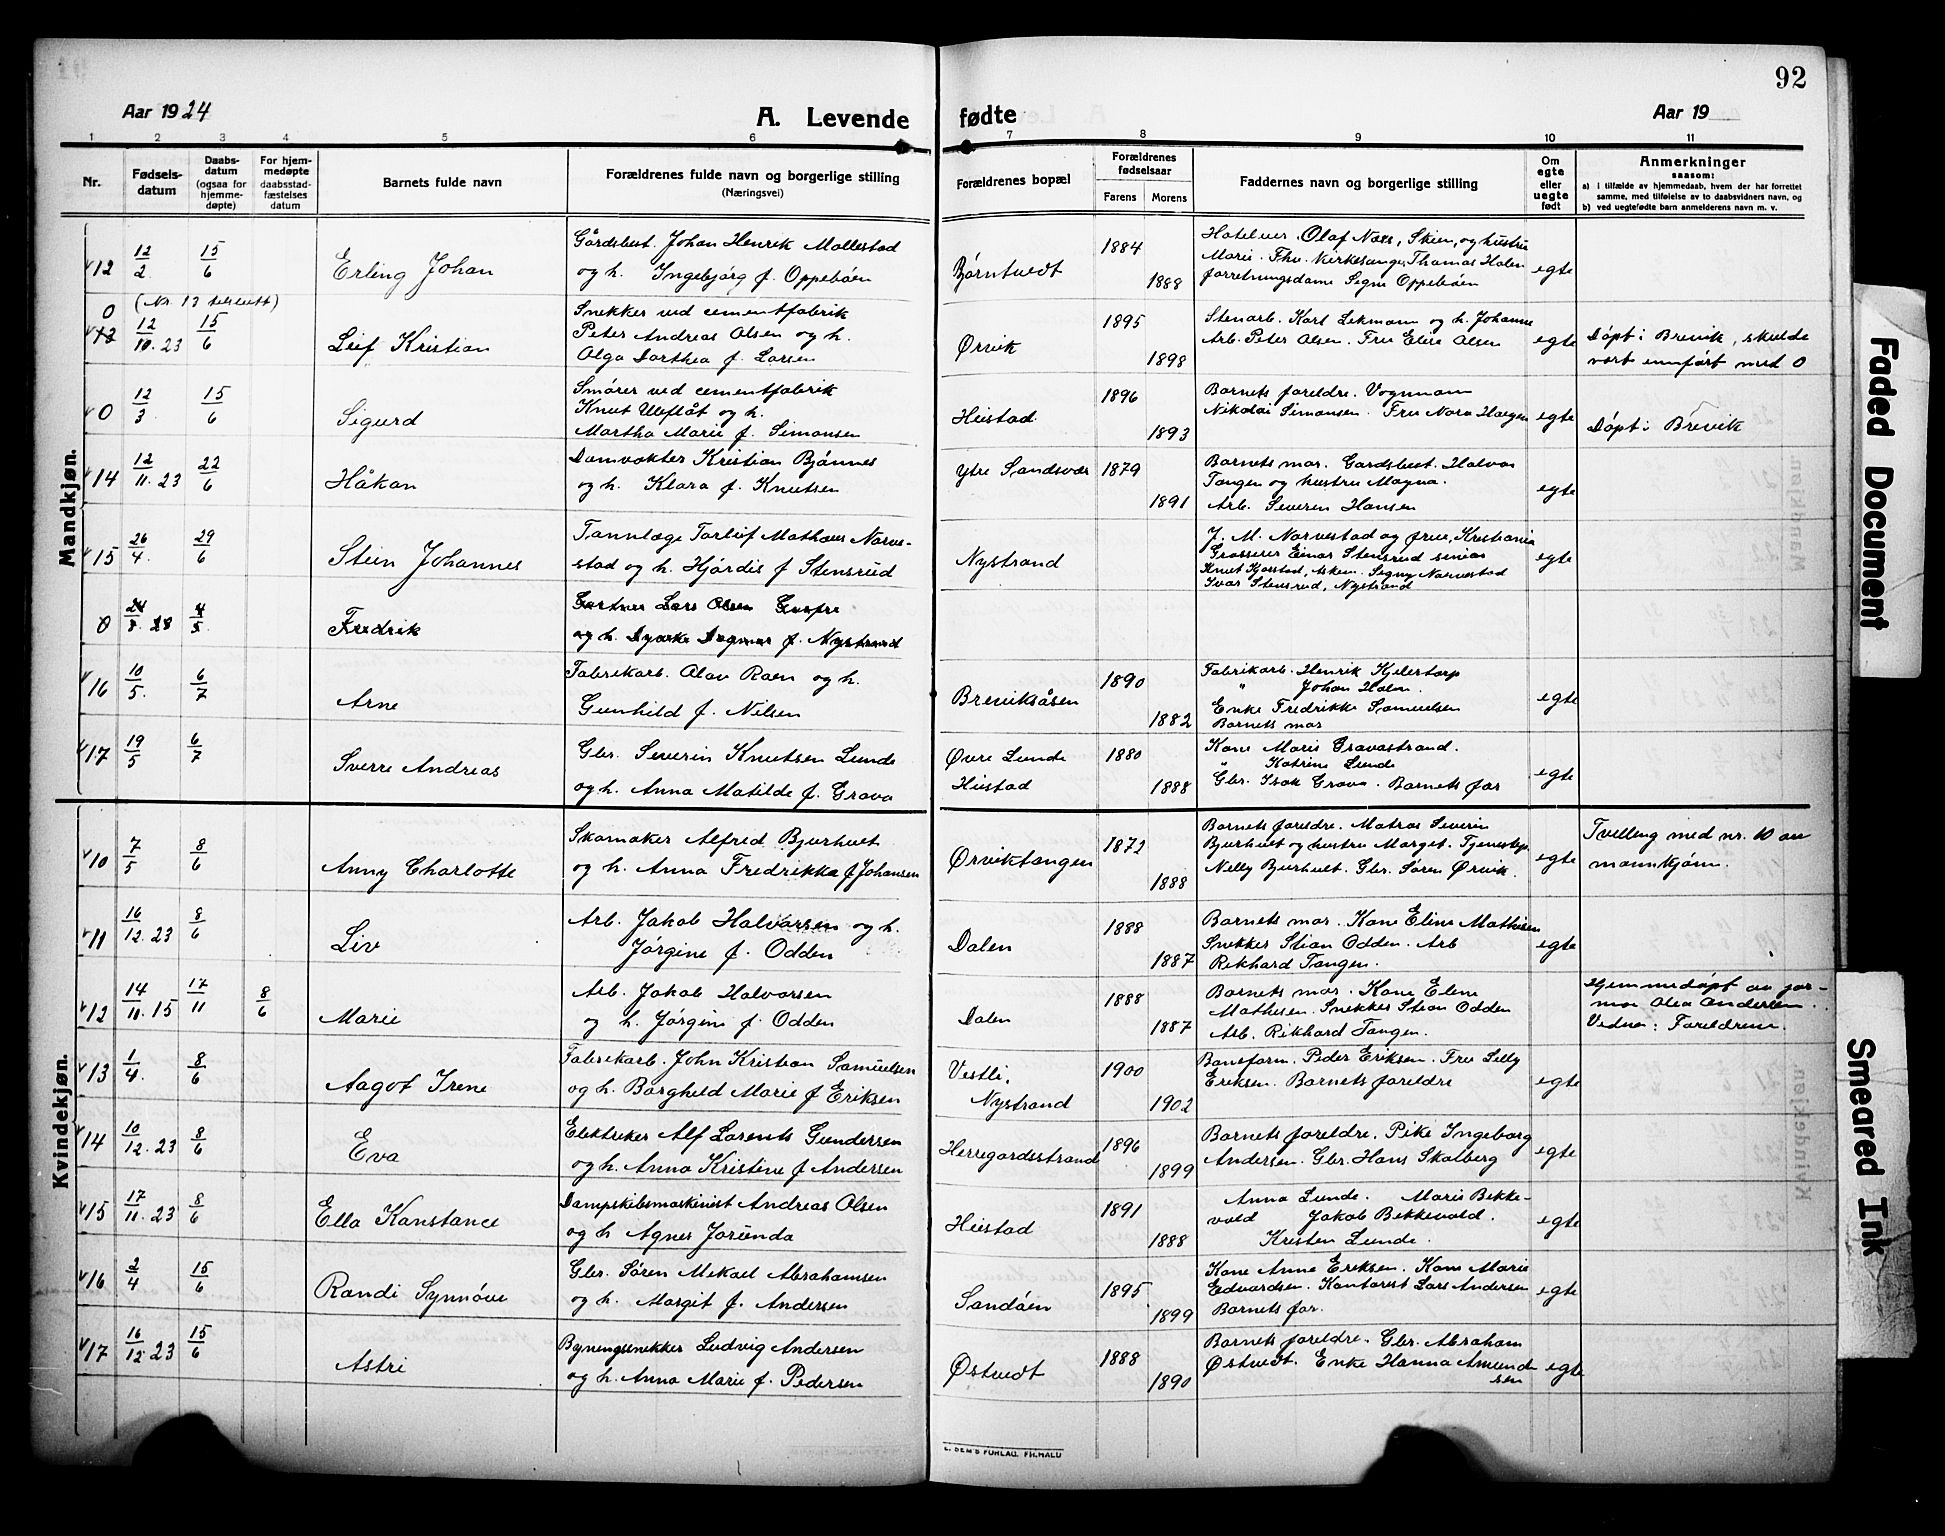 92
Aar 1924
A. Levende fødte
Aar 19
1 2 3 4 5 6 7 8 9 10 11
Nr.
Fødsels-
datum
Daabs-
datum
(ogsaa for
hjemme-
døpte)
For hjem-
medøpte
daabsstad-
fæstelses
datum
Barnets fulde navn
Forældrenes fulde navn og borgerlige stilling
(Næringsvei)
Forældrenes bopæl
Forældrenes
fødselsaar
Farens Morens
Faddernes navn og borgerlige stilling
Om
egte
eller
uegte
født
Anmerkninger
saasom:
a) i tilfælde av hjemmedaab, hvem der har forrettet
samme, med tilføielse av to daabsvidners navn, og
b) ved uegtefødte barn anmelderens navn m. v.
Mandkjøn.
12 12/2. 15/6 Erling Johan
Gårdsbest. Johan Henrik Mollestad
og h. Ingebjørg f. Oppebøen
Bjørntvedt 1884 1888
Hotelier Olaf Næss, Skien, og hustru
Marie. Fhv. Kirkesanger Thomas Holen
forretningsdame Signe Oppebøen
egte
0 (Nr. 13 slettet)
13 12/10. 23 15/6 Leif Kristian
Snekker ved cementfabrik
Peter Andreas Olsen og h.
Olga Dorthea f. Larsen
Ørvik 1895 1898
Stenarb. Karl Lekmann og h. Johanne
Arb. Peter Olsen. Fru Elise Olsen
egte
Døpt i Brevik, skulde
vært innført med 0
0 12/3 15/6 Sigurd
Smører ved cementfabrik
Knut Uleflåt og h.
Martha Marie f. Simonsen
Heistad 1896 1893
Barnets foreldre. Vognmann
Nikolai Simonsen. Fru Nora Haegen
egte
Døpt i Brevik
14 12/11. 23 22/6 Håkan
Damvokter Kristian Bjønnes
og h. Klara f. Knutsen
Ytre Sandsvær 1879 1891
Barnets mor. Gardsbest. Halvor
Tangen og hustru Magna.
Arb. Severin Hansen
egte
15 26/4. 29/6 Stein Johannes
Tannlæge Torleif Mathæus Norve-
stad og h. Hjørdis f Stensrud
Nystrand
J. M. Norvestad og frue, Kristiania
Grosserer Einar Stensrud senior
Knut Kjorstad, Asken. Signy Norvestad
Ivar Stensrud, Nystrand
egte
0 24/8. 23 4/5. Fredrik
Gartner Lars Olsen
og h. Dyveke Dagmar f. Nystrand
16 10/5. 6/7 Arne
Fabrikarb. Olav Roen og h.
Gunhild f. Nilsen
Breviksåsen 1890 1882
Fabrikarb. Henrik Kjelstorp
" Johan Holm.
Enke Fredrikke Samuelsen
Barnets mor
egte
17 19/5 6/7 Sverre Andreas
Gbr. Severin Knutsen Lunde
og h. Anna Matilde f. Grava
Øvre Lunde
Heistad 1880 1888
Kone Maris Gravastrand.
" Katrine Lunde
Gbr. Isak Grava. Barnets far
egte
Kvindekjøn.
10 7/5 8/6 Anny Charlotte
Skomaker Alfred Bjurhult
og h. Anna Fredrikke f Johansen
Ørviktangen 1872 1888
Barnets foreldre. Matros Severin
Bjurhult og hustru Margot. Tjenestep.
Nelly Bjurhult. Gbr. Søren Ørvik.
egte
Tvilling med nr. 10 av
mannkjønn.
11 16/12. 23 8/6 Liv
Arb. Jakob Halvorsen og h.
Jørgine f. Odden
Dalen 1888 1887
Barnets mor. Kone Eline Mathisen
Snekker Stian Odden. Arb
Rikhard Tangen.
egte
12 14/11. 15 17/11 8/6 Marie
Arb. Jakob Halvorsen
og h. Jørgine f. Odden
Dalen 1888 1887
Barnets mor. Kone Eline
Mathisen. Snekker Stian Odden
Arb. Rikhard Tangen.
Hjemmedøpt av jor-
mor Olea Andersen.
Vidner: Foreldrene.
13 1/4. 8/6 Aagot Irene
Fabrikarb. John Kristian Samuelsen
og h. Borghild Marie f Eriksen
Vestli,
Nystrand 1900 1902
Baneform. Peder Eriksen. Fru Silly
Eriksen. Barnets foreldre
egte
14 10/12. 23 8/6 Eva
Elektriker Alf Lorents Gundersen
og h. Anna Kristine f Andersen
Herregardsstrand 1896 1899
Barnets foreldre. Pike Ingeborg
Andersen. Gbr. Hans Skalberg
egte
15 17/11. 23 8/6 Ella Konstance
Dampskibsmaskinist Andreas Olsen
og h Agnes Jorunda
Heistad 1891 1888
Anna Lunde. Maris Bekke-
vold Jakob Bekkevold.
Kristen Lunde.
egte
16 2/4 15/6 Randi Synnøve
Gbr. Søren Mikael Abrahamsen
og h. Margit f. Andersen
Sandøen 1895 1899
Kone Anne Eriksen. Kone Marie
Edvardsen. Kontorist Lars Andersen
Barnets far.
egte
17 16/12. 23 15/6 Astri
Bygningssnekker Ludvig Andersen
og h. Anna Marie f. Pedersen
Østvedt 1888 1890
Barnets foreldre. Gbr. Abraham
Østvedt. Enke Hanna Amund
sen
egte
E. SEM'S FORLAG. FR.HALD
Faded Document
Smeared Ink